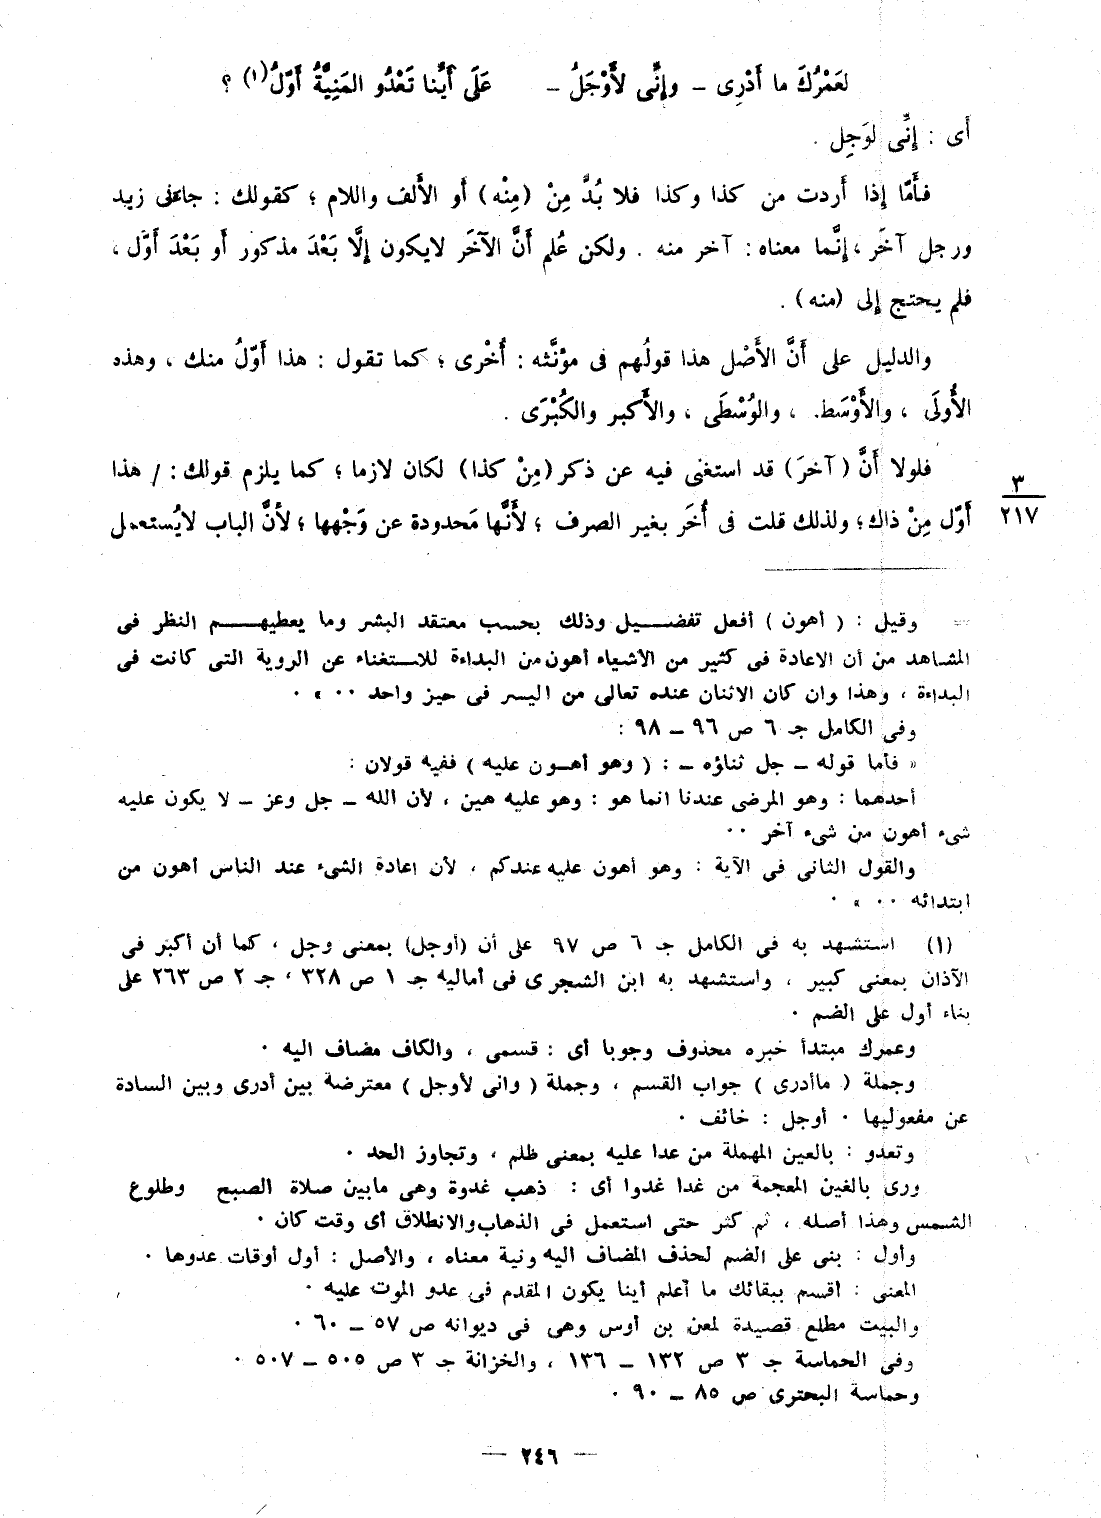 لَعَمْرُكَ ما أَدْرِى – وإنِّى لأَوْجَلُ – عَلَى أَيِّنا تَعْدُو المَنِيَّةُ أَوّلُ(١) ؟
أَى : إنِّى لوَجِل .
فأَمّا إِذا أَردت من كذا وكذا فلا بُدَّ مِنْ (مِنْه) أَو الأَلف واللام ؛ كقولك : جاءنى زيد
ورجل آخَر ، إنَّما معناه : آخر منه . ولكن عُلم أَنَّ الآخَر لايكون إلَّا بَعْدَ مذكور أَو بَعْدَ أَوّل ،
فلم يحتج إلى (منه) .
والدليل على أَنَّ الأَصْل هذا قولُهم فى مؤنَّثه : أُخْرى ؛ كما تقول : هذا أَوّلُ منك ، وهذه
الأُولَى ، والأَوْسَط ، والوُسْطَى ، والأَكبر والكُبْرَى .
فلولا أَنَّ (آخرَ) قد استغنى فيه عن ذكر (مِنْ كذا) لكان لازما ؛ كما يلزم قولك : / هذا
٣
٢١٧
أَوّل مِنْ ذاك ؛ ولذلك قلت فى أُخَر بغير الصرف ؛ لأَنَّها مَحدودة عن وَجْهها ؛ لأنَّ الباب لايُستعمل
= وقيل : ( أهون ) أفعل تفضـــيل وذلك بحسب معتقد البشر وما يعطيهــم النظر فى
المشاهد من أن الاعادة فى كثير من الأشياء أهون من البداءة للاستغناء عن الروية التى كانت فى
البداءة ، وهذا وان كان الاثنان عنده تعالى من اليسر فى حيز واحد ٠٠ » ٠
وفى الكامل جـ ٦ ص ٩٦ – ٩٨ :
« فأما قوله – جل ثناؤه – : ( وهو أهــون عليه ) ففيه قولان :
أحدهما : وهو المرضى عندنا انما هو : وهو عليه هين ، لأن الله – جل وعز – لا يكون عليه
شىء أهون من شىء آخر ٠٠
والقول الثانى فى الآية : وهو أهون عليه عندكم ، لأن اعادة الشىء عند الناس أهون من
ابتدائه ٠٠ » ٠
(١) استشهد به فى الكامل جـ ٦ ص ٩٧ على أن (أوجل) بمعنى وجل ، كما أن أكبر فى
الآذان بمعنى كبير ، واستشهد به ابن الشجرى فى أماليه جـ ١ ص ٣٢٨ ، جـ ٢ ص ٢٦٣ على
بناء أول على الضم ٠
وعمرك مبتدأ خبره محذوف وجوبا أى : قسمى ، والكاف مضاف اليه ٠
وجملة ( ماأدرى ) جواب القسم ، وجملة ( وانى لأوجل ) معترضة بين أدرى وبين السادة
عن مفعوليها ٠ أوجل : خائف ٠
وتعدو : بالعين المهملة من عدا عليه بمعنى ظلم ، وتجاوز الحد ٠
ورى بالغين المعجمة من غدا غدوا أى : ذهب غدوة وهى مابين صلاة الصبح وطلوع
الشمس وهذا أصله ، ثم كثر حتى استعمل فى الذهاب والانطلاق أى وقت كان ٠
وأول : بنى على الضم لحذف المضاف اليه ونية معناه ، والأصل : أول أوقات عدوها ٠
المعنى : أقسم ببقائك ما أعلم أينا يكون المقدم فى عدو الموت عليه ٠
والبيت مطلع قصيدة لمعن بن أوس وهى فى ديوانه ص ٥٧ – ٦٠ ٠
وفى الحماسة جـ ٣ ص ١٣٢ – ١٣٦ ، والخزانة جـ ٣ ص ٥٠٥ – ٥٠٧ ٠
وحماسة البحترى ص ٨٥ – ٩٠ ٠
— ٢٤٦ —